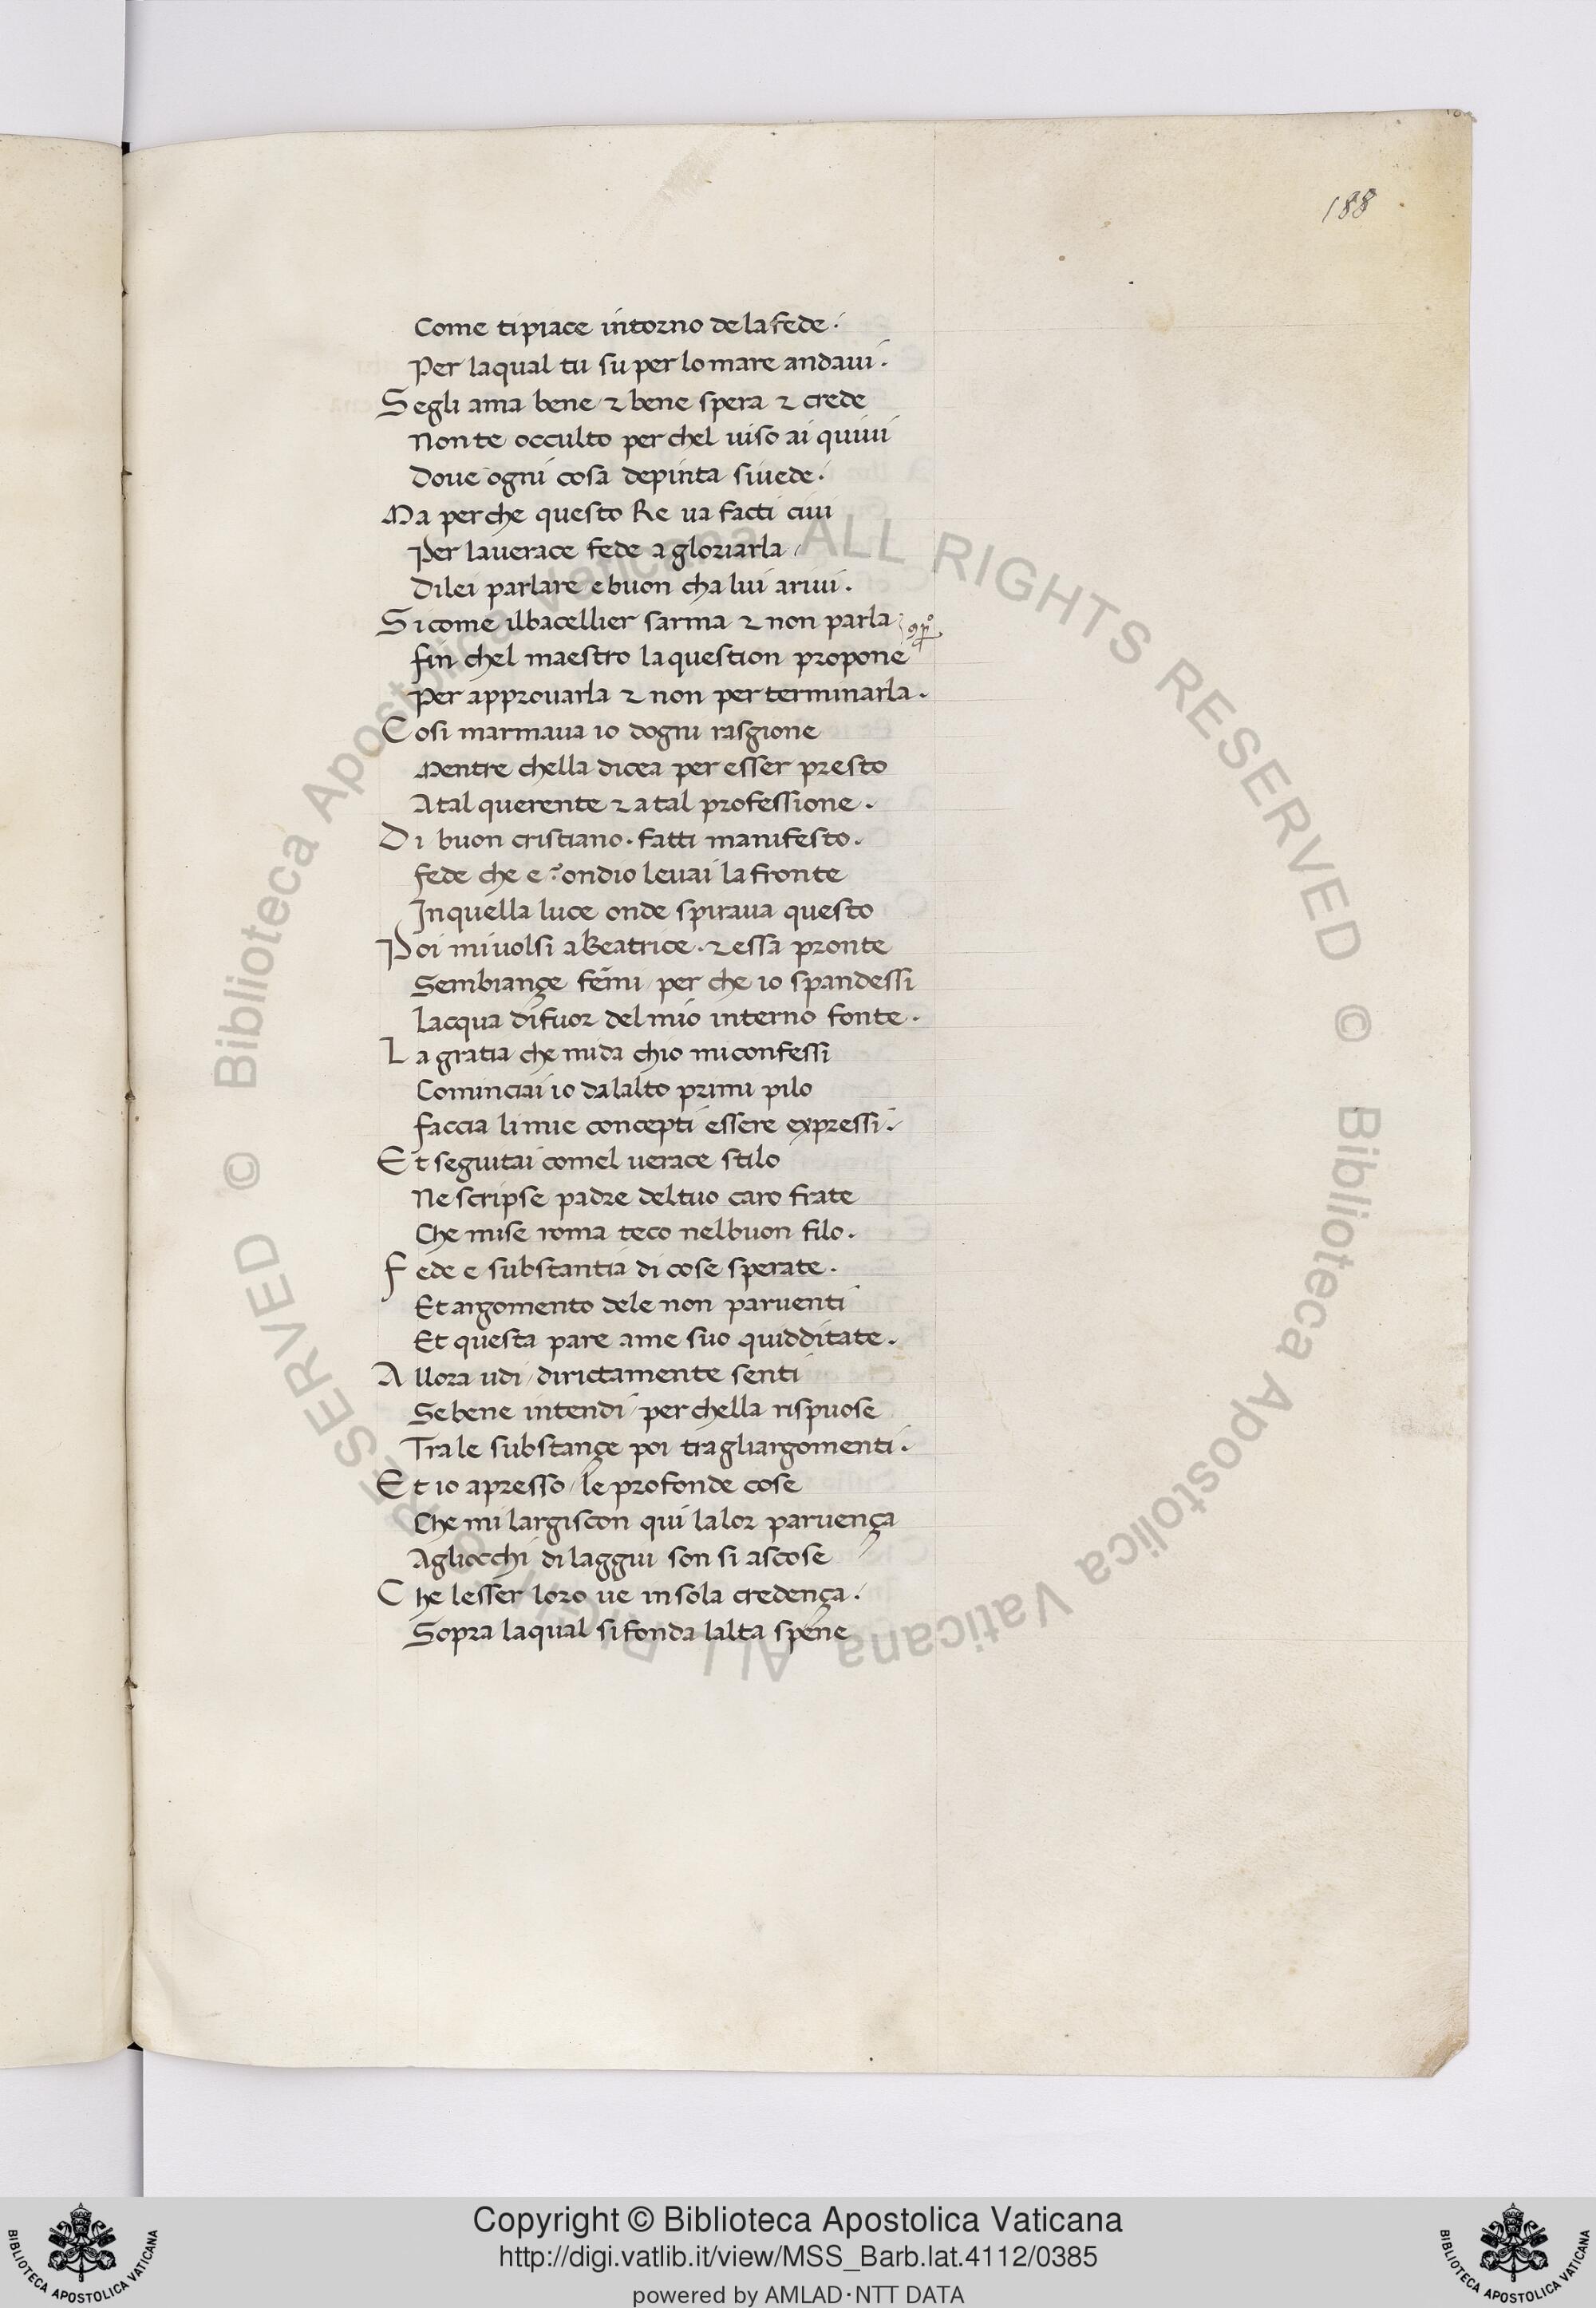 188
Come ti piace intorno de la fede ·
Per laqual tu su per lo mare andaui ·
Segli ama bene ⁊ bene spera ⁊ crede
Non te occulto perchel uiso ai quiui
Doue ogni cosa depinta siuede ·
Ma perche questo Re ua facti ciui
Per lauerace fede a gloriarla /
Dilei parlare e buon cha lui ariui ·
Si come ilbacellier sarma ⁊ non parla
fin chel maestro la question propone
Per approuarla ⁊ non per terminarla ·
Cosi marmaua io dogni rasgione
Mentre chella dicea per esser presto
A tal querente ⁊ a tal professione ·
Di buon cristiano · fatti manifesto ·
fede che e ? ondio leuai la fronte
In quella luce onde spiraua questo
Poi miuolsi a Beatrice · ⁊ essa pronte
Sembiançe fēmi / per che io spandessi
Lacqua difuor del mio interno fonte ·
La gratia che mida chio miconfessi
Cominciai io dalalto primi pilo
faccia li mie concepti essere expressi ·
Et seguitai comel uerace stilo
Ne scripse padre deltuo caro frate
Che mise roma teco nelbuon filo ·
Fede e substantia di cose sperate ·
Et argomento dele non paruenti
Et questa pare ame suo quidditate ·
Allora udi / dirictamente senti
Se bene intendi / perchella rispuose
Tra le substançe poi tra gliargomenti ·
Et io apresso / le profonde cose
Che mi largiscon qui lalor paruença
Agliocchi di laggiu son si ascose
Che lesser loro ue in sola credença ·
Sopra laqual si fonda lalta spene
© Biblioteca Apostolica Vaticana ALL RIGHTS RESERVED © Biblioteca Apostolica Vaticana ALL RIGHTS RESERVED
Copyright © Biblioteca Apostolica Vaticana
http://digi.vatlib.it/view/MSS_Barb.lat.4112/0385
powered by AMLAD·NTT DATA
BIBLIOTECA APOSTOLICA VATICANA
BIBLIOTECA APOSTOLICA VATICANA